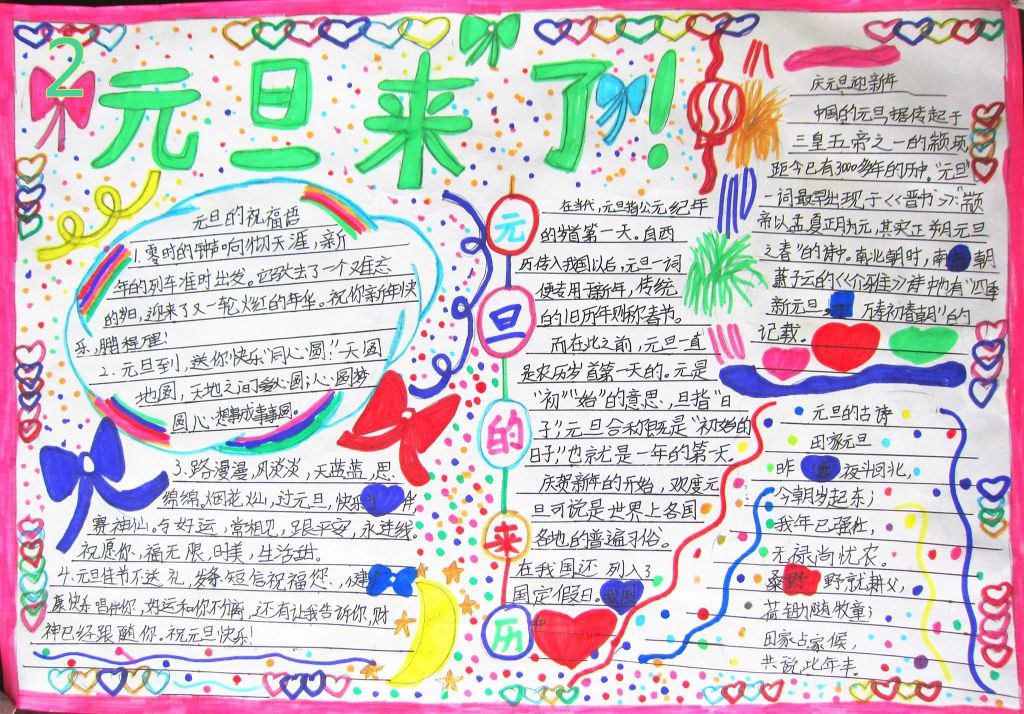 2
元旦来了!
元旦的祝福语
1.零时的钟响彻天涯,新
年的列车准时出发。它驮去了一个难忘
的岁月,迎来了又一轮火红的年华。祝你新年快
乐,鹏程
2.元旦到,送你快乐“同心圆”:天圆
地圆,天地之间
心圆;心圆梦
圆心想事成事事圆。
3.路漫漫,风淡淡,天蓝蓝,思
绵绵。烟花灿,过元旦,快乐
伴
赛神仙。与好运,常相见,跟平安,永连线。
祝愿你,福无限,日美,生活甜。
4.元旦佳节不送礼,发条短信祝福您,
健
康快乐
你,好运和你不分离,还有让我告诉你,财
神已经跟随你。祝元旦快乐!
元旦的来历
在当代,元旦指公元纪年
的岁首第一天。自西
历传入我国以后,元旦一词
便专用于新年,传统
的旧历年则称春节。
而在此之前,元旦一直
是农历岁首第一天的。元是
“初”“始”的意思,旦指“日
子”,元旦合称既是“初始的
日子”,也就是一年的第一天。
庆贺新年的开始,欢度元
旦可说是世界上各国
各地的普遍习俗。
在我国还列入了
国定假日。我国
和
庆元旦迎新年
中国的元旦据传起于
三皇五帝之一的颛顼
距今已有3000多年的历史。“元旦”
一词最早出现于<<晋书>>:“颛
帝以孟夏正月为元,其实正朔元旦
之春”的诗中。南北朝时,南
朝
萧子云的<<介雅>>诗中也有“四季
新元旦,
万寿初春朝”的
记载。
元旦的古诗
田家元旦
昨
夜斗回北,
今朝岁起东;
我年已强壮,
无禄尚忧农。
桑野
野就耕父,
荷锄随牧童;
田家占家候,
共说此年丰。